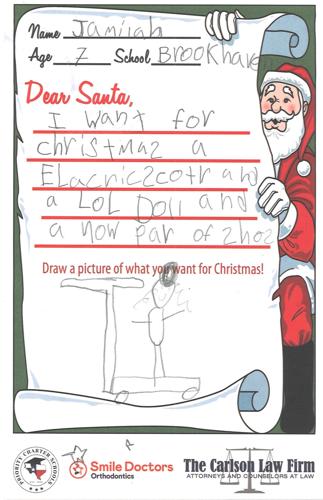 Name Jamiiah
Age 7 School Brookhaven
Dear Santa,
I want for
christmaz a
ELacnic2cotr and
a LOL Doll and
a now par of 2hoz
Draw a picture of what you want for Christmas!
PRIORITY CHARTER SCHOOLS
Smile Doctors
Orthodontics
The Carlson Law Firm
ATTORNEYS AND COUNSELORS AT LAW